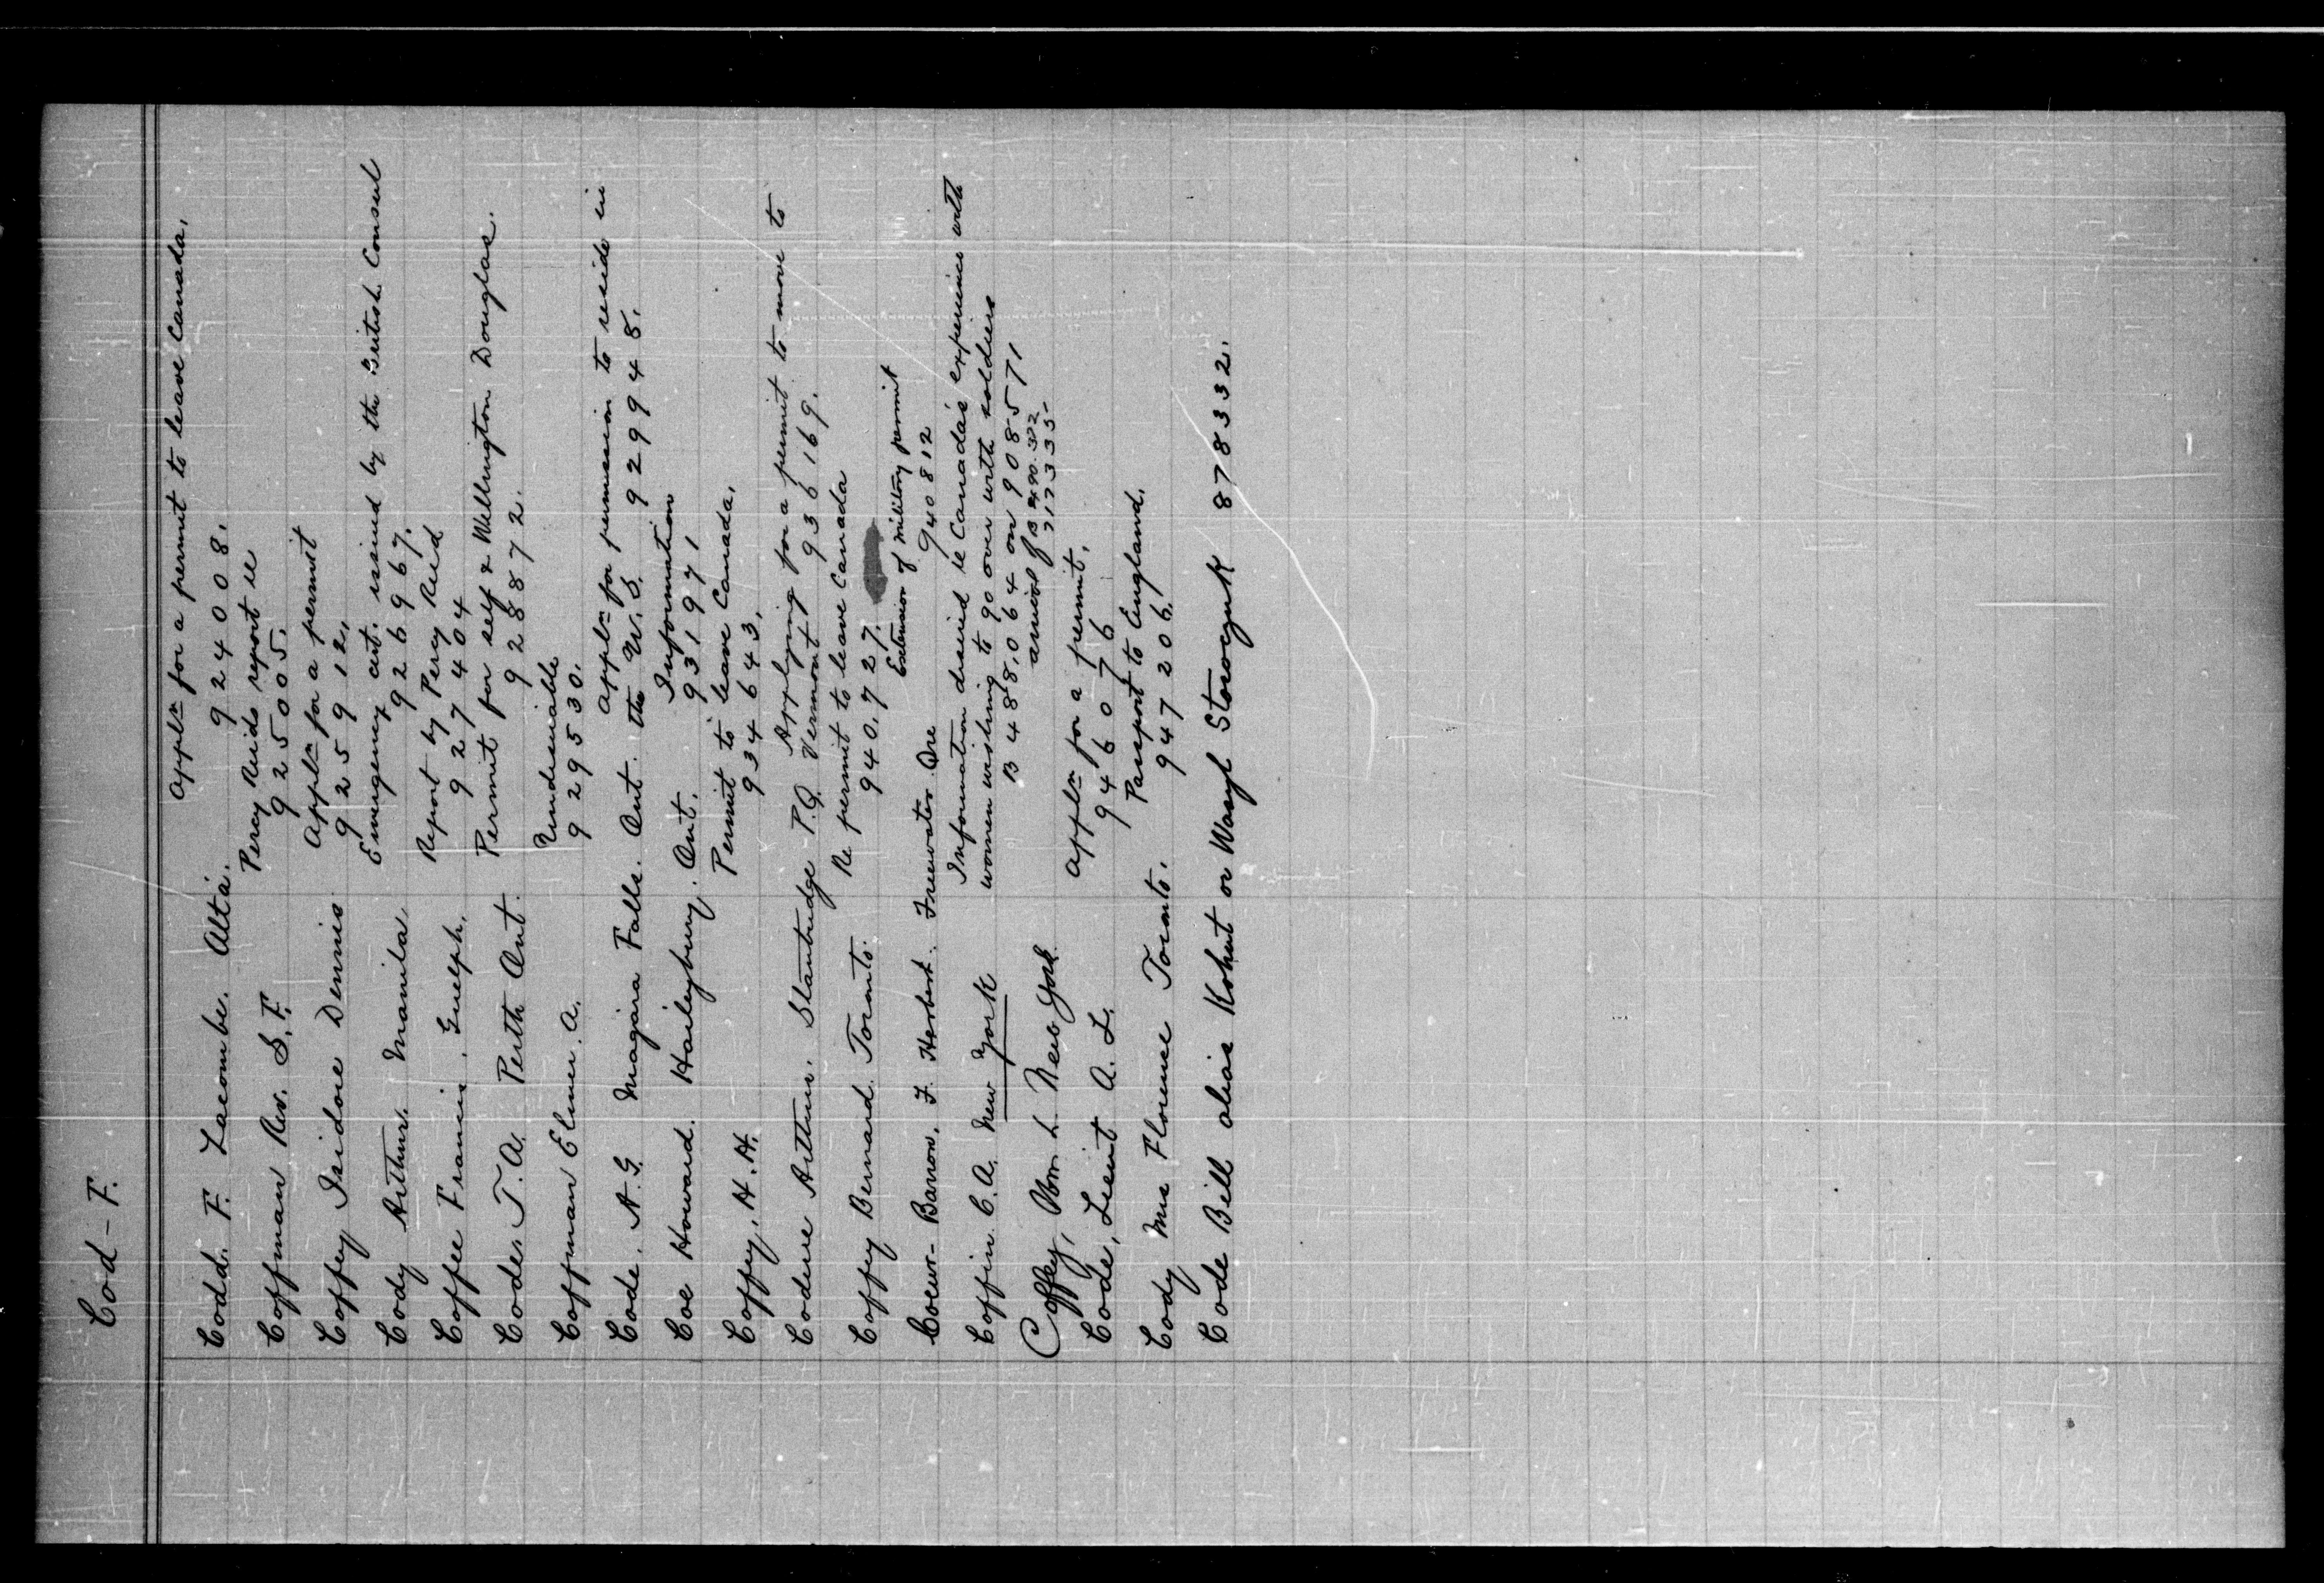 Cod - F.
Appln for a permit to leave Canada.
Codd. F. Lacombe. Alta. 924008.
Percy Reids report re
Coffman Rev. S. F. 925005.
Appln for a permit
Coffey Isidore Dennis 925912.
Emergency cert. issued by the British Consul
Cody Arthur. Manila. 926967.
Report by Percy Reid
Coffee Francis. Guelph. 927404
Permit for self & Wellington Douglas.
Code. T. A. Perth Ont. 928872.
Undesirable
Coffman Elmer. A. 929530.
Appln for permission to reside in
Code. A. G. Niagara Falls. Ont. the U. S. 929948.
Information
Coe Howard. Haileybury. Ont. 931971
Permit to leave Canada.
Coffey, H. H. 934643.
Applying for a permit to move to
Codere Arthur. Stanbridge P.Q. Vermont 936169.
Re permit to leave Canada
Coffey Bernard. Toronto. 940,727.
Extension of military permit
Coeur-Barron, F. Herbert. Freewater Ore 940812
Information desired re Canada's experience with
Coffin. C. A. New York women wishing to go over with soldiers
B 488,064 on 908571
Coffey, Wm. L. New York. arrival of B 490.322
717335
Appln for a permit.
Code, Lieut A. L. 946076
Passport to England.
Cody Mrs Florence Toronto. 947206.
Code Bill alias Kohut or Wasyl Storoczuk 878332.